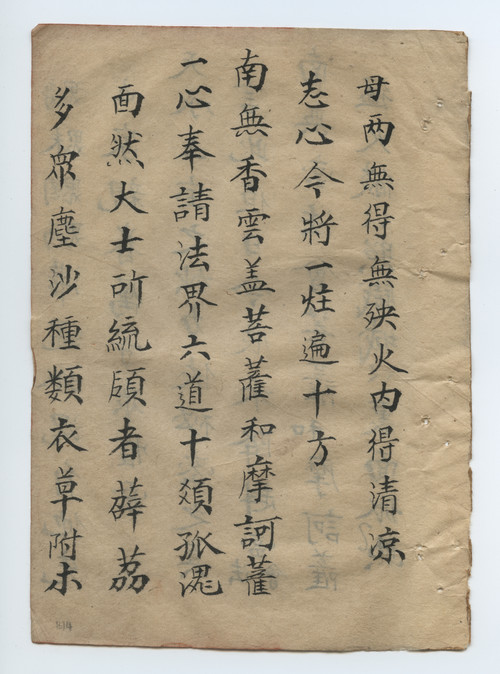 母两無得無殃火内得清涼
志心今將一炷遍十方
南無香雲盖菩薩和摩訶薩
一心奉請法界六道十類孤魂
面然大士所統領者薜荔
多衆塵沙種類衣草附木
814